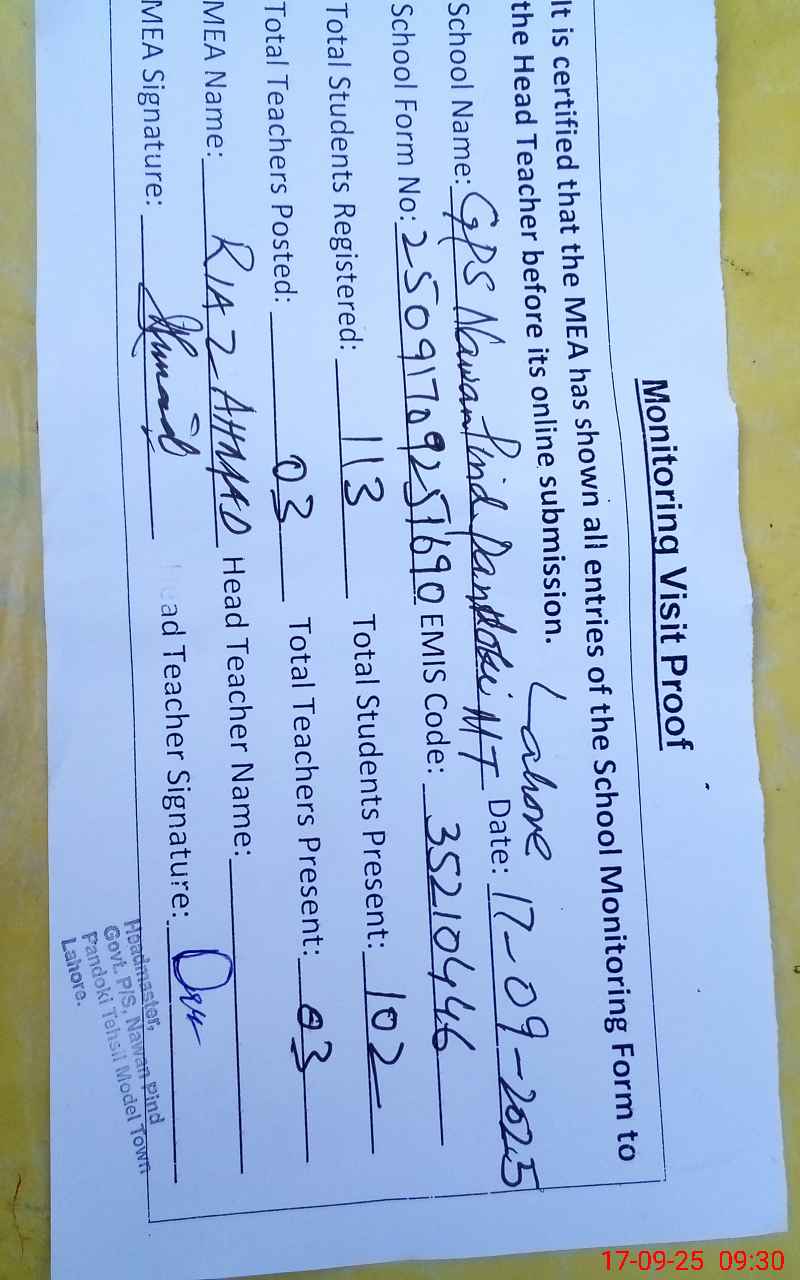 Monitoring Visit Proof
It is certified that the MEA has shown all entries of the School Monitoring Form to
the Head Teacher before its online submission.
Lahore
School Name: GPS Nawan Pind Pandoki MT Date: 17-09-2025
School Form No: 25091709251690 EMIS Code: 35210446
Total Students Registered: 113 Total Students Present: 102
Total Teachers Posted: 03 Total Teachers Present: 03
MEA Name: RIAZ AHMAD Head Teacher Name:
MEA Signature: Head Teacher Signature:
Headmaster,
Govt. P/S, Nawan Pind
Pandoki Tehsil Model Town
Lahore.
17-09-25 09:30